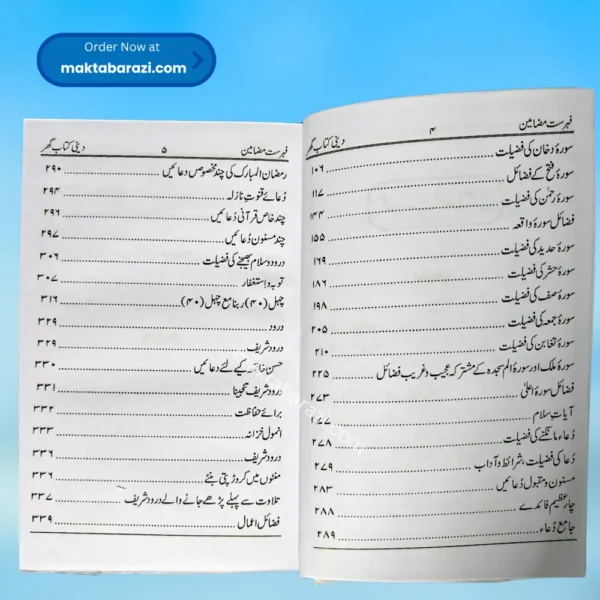 Order Now at
maktabarazi.com
فہرست مضامین ۴ دینی کتاب گھر
سورۂ دخان کی فضیلت ۱۰۶
سورۂ فتح کے فضائل ۱۱۷
سورۂ رحمٰن کی فضیلت ۱۴۴
فضائل سورۂ واقعہ ۱۵۵
سورۂ حدید کی فضیلت ۱۶۹
سورۂ حشر کی فضیلت ۱۸۶
سورۂ صف کی فضیلت ۱۹۸
سورۂ جمعہ کی فضیلت ۲۰۵
سورۂ تغابن کی فضیلت ۲۱۰
سورۂ ملک اور سورۂ الم سجدہ کے مشترکہ عجیب و غریب فضائل ۲۲۵
فضائل سورۂ اعلیٰ ۲۷۳
آیات سلام ۲۷۷
دُعاء مانگنے کی فضیلت ۲۷۸
دُعا کی فضیلت، شرائط و آداب ۲۷۹
مسنون و مقبول دُعائیں ۲۸۳
چار عظیم فائدے ۲۸۸
جامع دُعاء ۲۸۹
فہرست مضامین ۵ دینی کتاب گھر
رمضان المبارک کی چند مخصوص دعائیں ۲۹۰
دُعائے قنوتِ نازلہ ۲۹۴
چند خاص قرآنی دُعائیں ۲۹۶
چند مسنون دُعائیں ۲۹۷
درود و سلام بھیجنے کی فضیلت ۳۰۶
توبہ و استغفار ۳۰۷
چہل (۴۰) ربنا مع چہل (۴۰) ۳۱۶
درود ۳۲۹
درود شریف ۳۲۹
حسن خاتمہ کے لئے دعائیں ۳۳۰
درود شریف تنجینا ۳۳۱
برائے حفاظت ۳۳۲
انمول خزانہ ۳۳۳
درود شریف ۳۳۶
منٹوں میں کروڑ پتی بنئے ۳۳۶
تلاوت سے پہلے پڑھے جانے والے درود شریف ۳۳۷
فضائل اعمال ۳۳۹